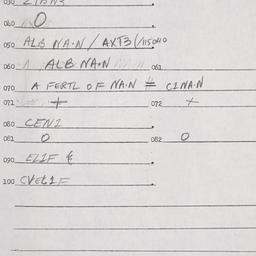 030
040 O
050 ALB NA·N / AXT3 (/115040
060 ALB NA·N 061
070 A FERTL OF NA·N = C1NA·N
071 + 072 +
080 CEN1
081 O 082 O
090 EL1F
100